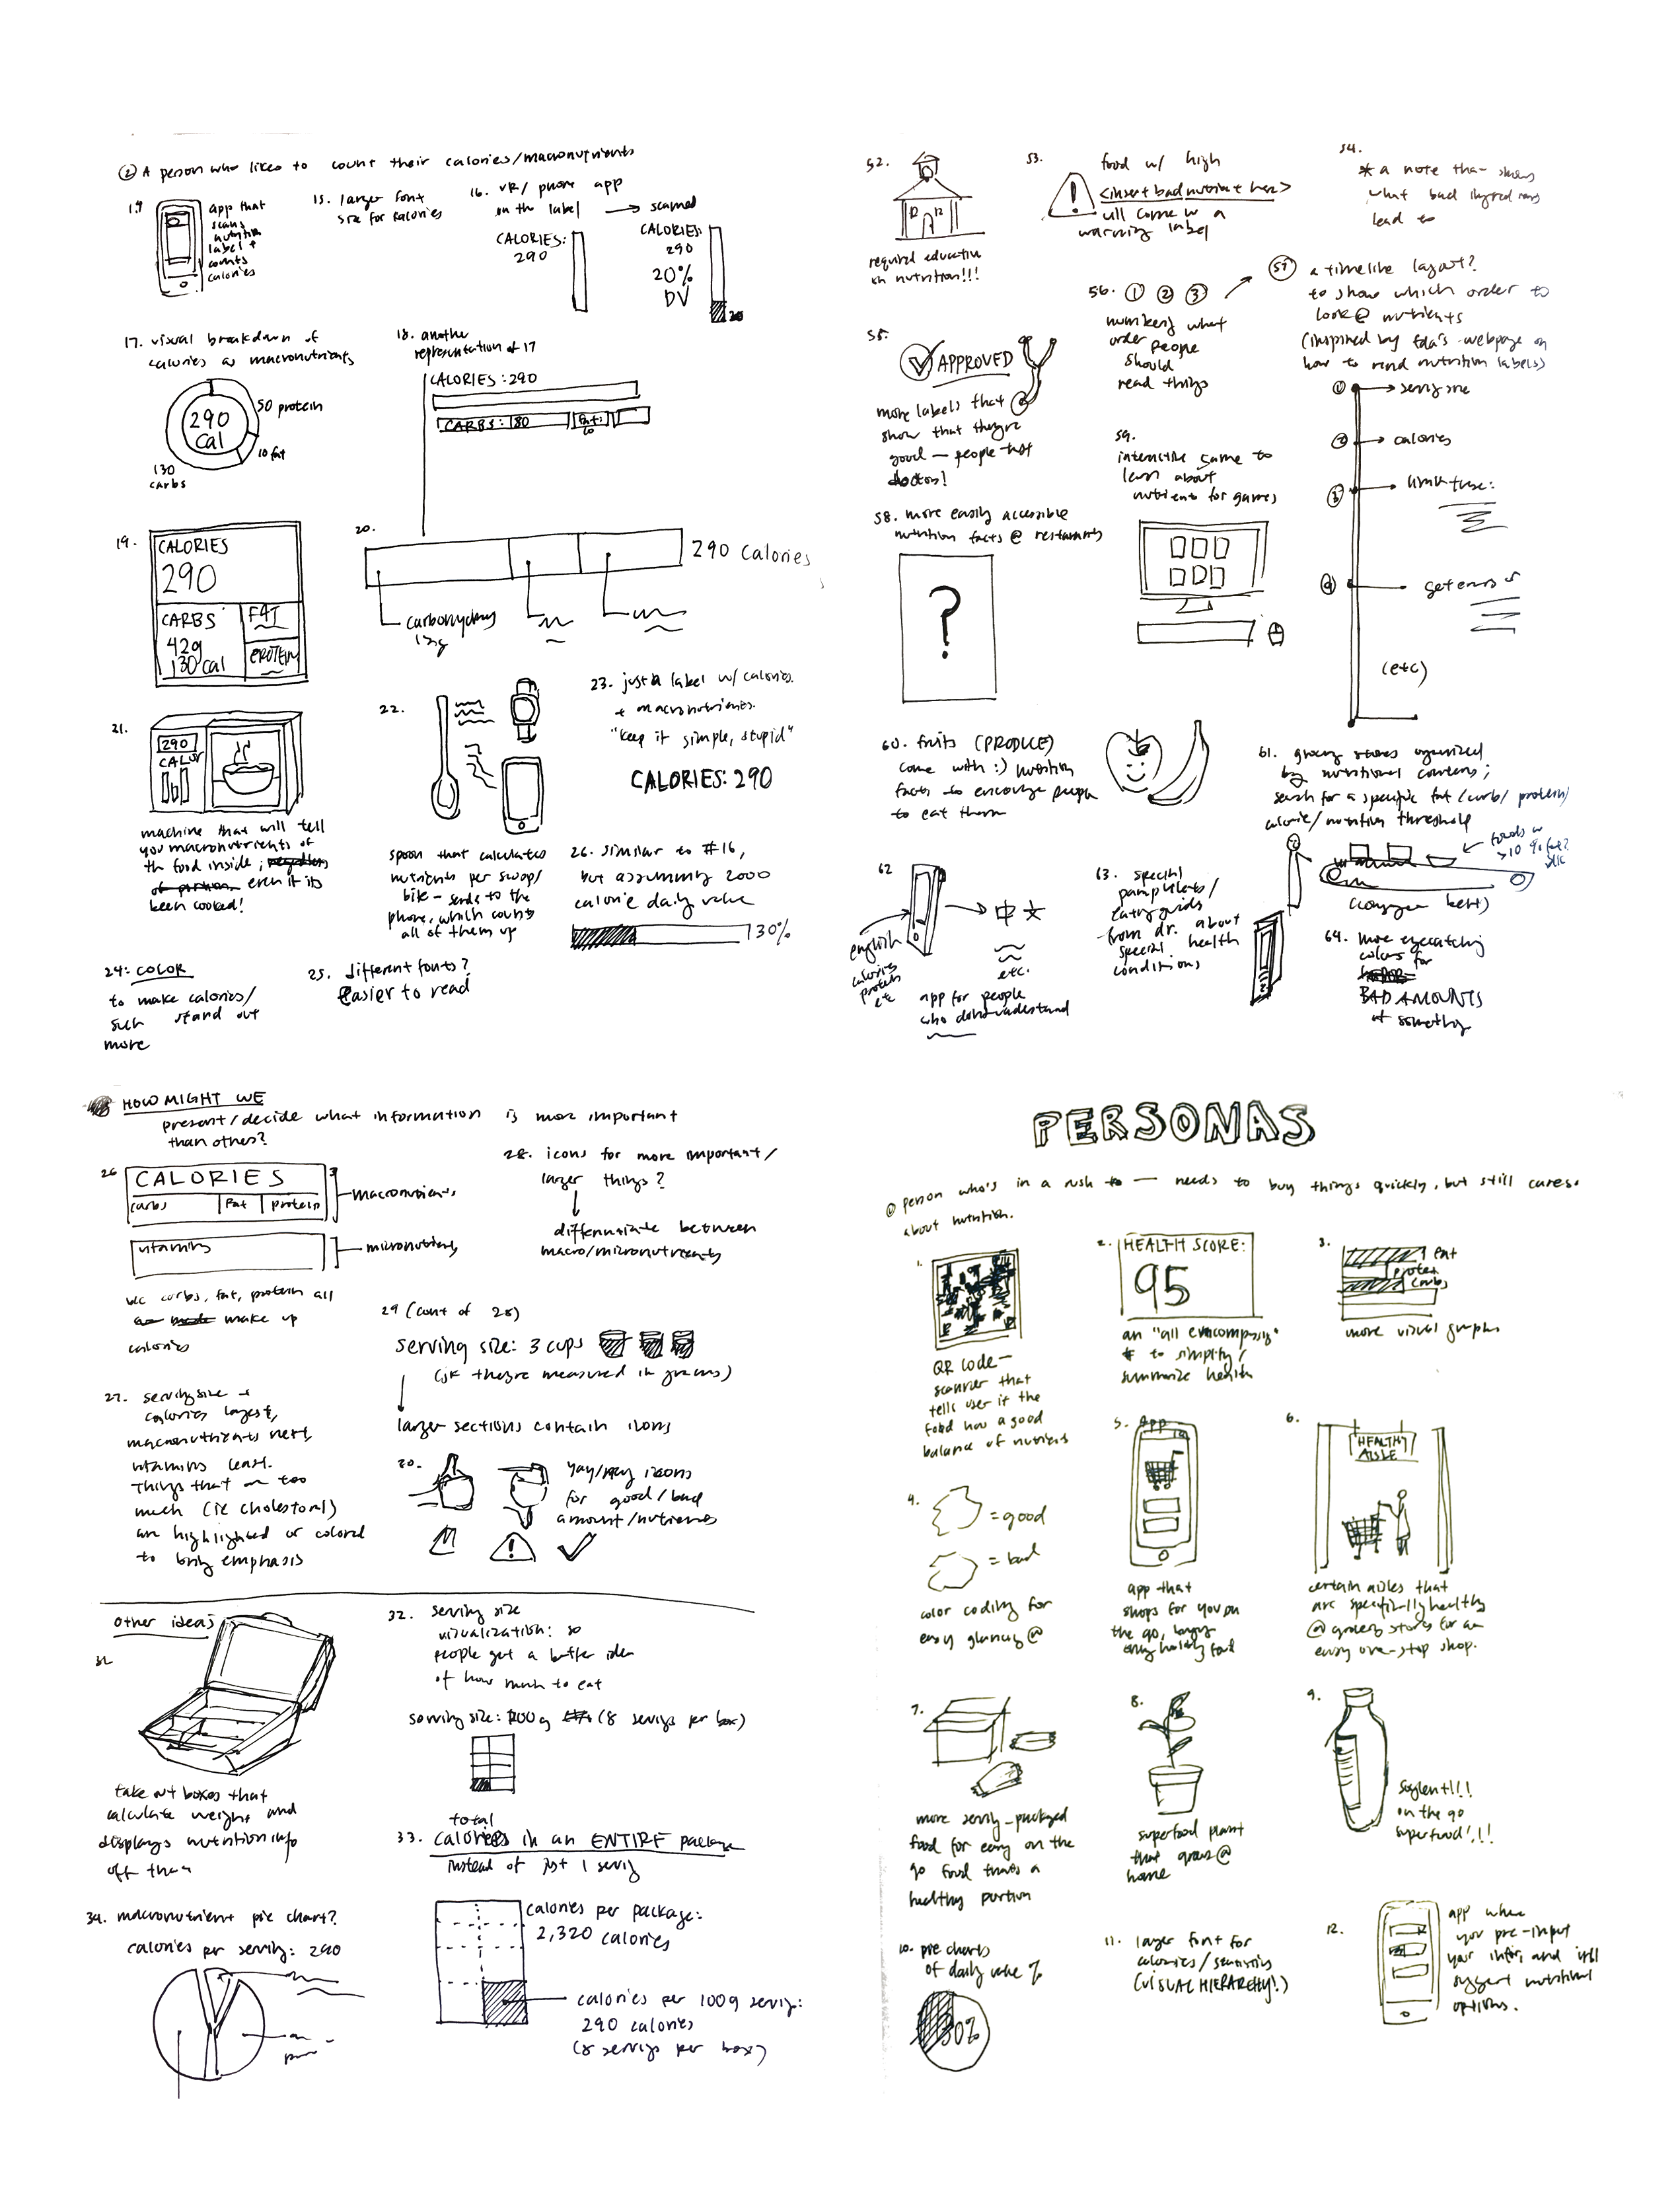 ② A person who likes to count their calories/macronutrients
14
app that
scans
nutrition
label +
counts
calories
15. larger font
size for calories
16. VR/ phone app
on the label → scanned
CALORIES:
290
CALORIES:
290
20%
DV
17. visual breakdown of
calories as macronutrients
290
Cal
50 protein
10 fat
130
carbs
18. another
representation of 17
CALORIES: 290
CARBS: 180
19.
CALORIES
290
CARBS
42g
130 cal
FAT
PROTEIN
20.
290 Calories
carbohydrates
21.
290
CALOR
machine that will tell
you macronutrients of
the food inside; even if its
been cooked!
22.
spoon that calculates
nutrients per swoop/
bite - sends to the
phone, which counts
all of them up
23. just a label w/ calories
+ macronutrients.
"keep it simple, stupid"
CALORIES: 290
26. similar to #16,
but assuming 2000
calorie daily value
130%
24: COLOR
to make calories/
such stand out
more
25. different fonts?
Easier to read
52.
required education
on nutrition!!!
53.
food w/ high
<insert bad nutrient here>
will come w a
warning label
54.
* a note that shows
what bad ingredients
lead to
55.
APPROVED
more labels that
show that they're
good — people trust
doctors!
56. ① ② ③
numbers what
order people
should
read things
57
a timeline layout?
to show which order to
look @ nutrients
(inspired by fda's webpage on
how to read nutrition labels)
① → serving size
② → calories
③ → limit these:
④ → get enough
(etc)
58. more easily accessible
nutrition facts @ restaurants
?
59.
interactive game to
learn about
nutrients for games
60. fruits (PRODUCE)
come with :) nutrition
facts to encourage people
to eat them
61. grocery stores organized
by nutritional contents;
search for a specific fat (carb/ protein)
calorie/nutrition threshold
foods w
(conveyor belt)
62
english
calories
protein
etc
etc.
app for people
who don't understand
63. special
pamphlets/
eating guides
from dr. about
special health
conditions
64. more eyecatching
colors for
BAD AMOUNTS
of something
HOW MIGHT WE
present/decide what information is more important
than others?
26
CALORIES
carbs
Fat
protein
macronutrients
vitamins
micronutrients
b/c carbs, fat, protein all
make up
calories
27. serving size +
calories largest,
macronutrients next,
vitamins least.
Things that are too
much (ie cholesterol)
are highlighted or colored
to bring emphasis
28. icons for more important/
larger things?
differentiate between
macro/micronutrients
29 (cont of 28)
serving size: 3 cups
(jk they're measured in grams)
larger sections contain icons
30.
yay/nay icons
for good/bad
amount/nutrients
other ideas
31.
take out boxes that
calculate weight and
displays nutrition info
off them
32. serving size
visualization: so
people get a better idea
of how much to eat
serving size: 100g (8 servings per box)
total
33. calories in an ENTIRE package
instead of just 1 serving
calories per package:
2,320 calories
calories per 100g serving:
290 calories
(8 servings per box)
34. macronutrient pie chart?
calories per serving: 290
PERSONAS
① person who's in a rush — needs to buy things quickly, but still cares
about nutrition.
1.
QR code —
scanner that
tells user if the
food has a good
balance of nutrients
2.
HEALTH SCORE:
95
an "all encompassing"
# to simplify/
summarize health
3.
fat
protein
carbs
more visual graphs
4.
= good
= bad
color coding for
easy glancing @
5. app
app that
shops for you on
the go, buying
only healthy food
6.
HEALTHY
AISLE
certain aisles that
are specifically healthy
@ grocery stores for an
easy one-stop shop.
7.
more serving-packaged
food for easy on the
go food that's a
healthy portion
8.
superfood plant
that grows @
home
9.
Soylent!!!
on the go
superfood!!!
10. pie charts
of daily value %
30%
11. larger font for
calories/statistics
(VISUAL HIERARCHY!)
12.
app where
you pre-input
your info, and it'll
suggest nutritional
options.